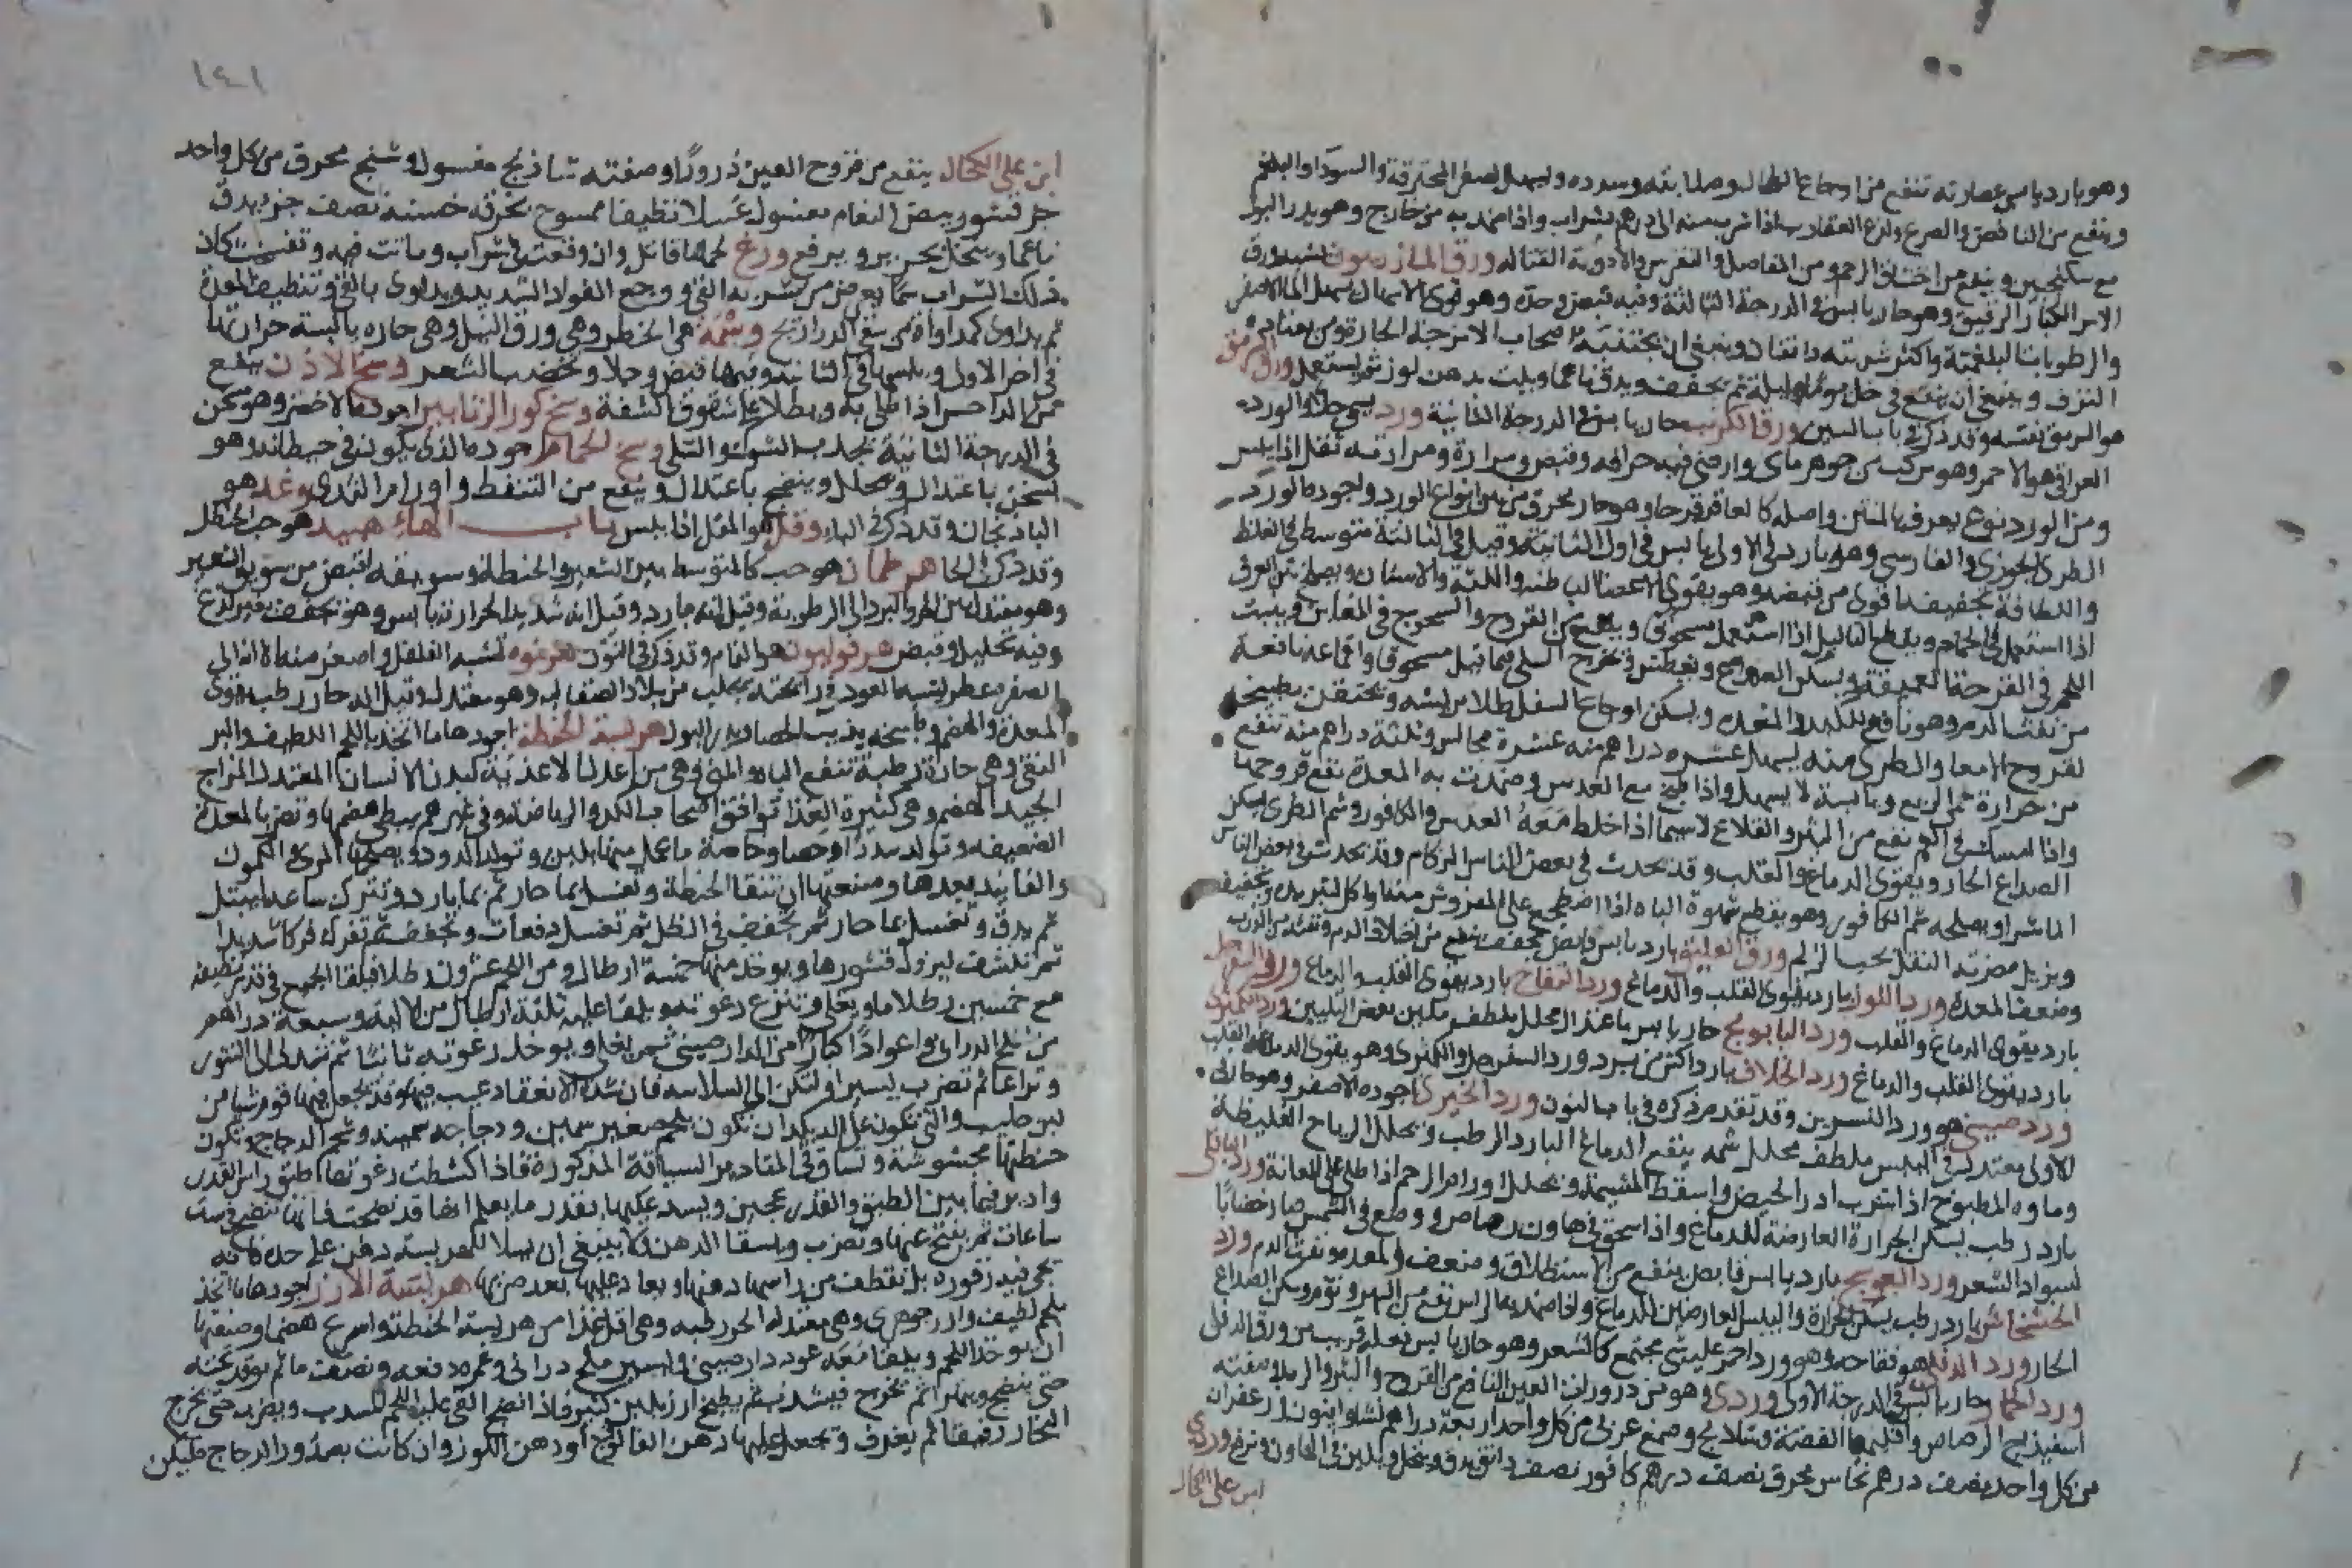 وهو بارد يابس عصارته تنفع من اوجاع الطحال وصلابته وسدده ويسهل الصفرا المحترقة والسودا والبلغم
وينفع من النافض والصرع ولدغ العقارب اذا شرب منه الى درهم بشراب واذا ضمد به من خارج وهو يدر البول
مع سكنجبين وينفع من اختناق الرحم ومن المفاصل والنقرس والادوية القتاله ورق المازريون يشبه ورق
الاس الكبار الرقيق وهو حار يابس في الدرجة الثالثة وفيه قبض وحدة وهو قوى الاسهال يسهل الما الاصفر
والرطوبات البلغمية واكثر شربته دانقان وينبغي ان يجتنبه اصحاب الامزجة الحارة ومن يعتاده
النزف وينبغي ان ينقع في خل يوما وليلة ثم يجفف ويدق ناعما ويلت بدهن لوز ثم يستعمل
هو السريق نفسه وقد ذكر في باب السين ورق الكرنب حار يابس في الدرجة الثانية ورد يسمى جلا والورد
العراقي هو الاحمر وهو مركب من جوهر مائ وارضي فيه حرافه وقبض ومرارة ومرارته تقل اذا يبس
ومن الورد نوع يعرف بالمنتن واصله كالعاقرقرحا وهو حار محرق من بين انواع الورد واجوده الورد
الطرى الجوري والفارسي وهو بارد في الاولى يابس في اول الثانية وقيل في الثالثة متوسط في الغلظ
واللطافة تجفيفه اقوى من قبضه وهو يقوى الاعضا الباطنه واللثة والاسنان ويصلح نتن العرق
اذا استعمل في الحمام ويقطع الثاليل اذا استعمل مسحوق وينفع من القروح والسحوج في المغابن وينبت
اللحم في القرحة العميقة ويسكن الصداع ويعطس وتخرج السلى فيما قيل مسحوقا واقماعه نافعة
من نفث الدم وهو نافع للكبد والمعدة ويسكن اوجاع السفل طلا بريشه وتحتقن بطبيخه
لقروح الامعا والطرى منه يسهل عشره دراهم منه عشرة مجالس وثلثة دراهم منه تنفع
من حرارة حمى الربع ويابسه لا يسهل واذا طبخ مع العدس وضمدت به المعدة نفع قروحها
واذا امسك في الفم نفع من البثر والقلاع لاسيما اذا خلط معه العدس والكافور وشم الطرى يسكن
الصداع الحار ويقوى الدماغ والقلب وقد يحدث في بعض الناس الزكام وقد يحدث في بعض الناس
الماشرا ويصلحه شم الكافور وهو يقطع شهوة الباه اذا اضطجع على المفروش منه واكل لتبريده وتجفيفه
ويزيل مضرته النقل بحب الزلم ورق العليق بارد يابس قابض مجفف ينفع من اختلاف الدم ونفثه من الرئة
وضعف المعدة ورد اللوز بارد يقوى القلب والدماغ ورد التفاح بارد يقوى القلب والدماغ ورد السفرجل
بارد يقوى الدماغ والقلب ورد البابونج حار يابس باعتدال محلل ملطف ملين بعض التليين ورد الكمثرى
بارد يقوى القلب والدماغ ورد الخلاف بارد اكثر من برد ورد السفرجل والكمثرى وهو يقوى الدماغ والقلب
ورد صيني هو ورد النسرين وقد تقدم ذكره في باب النون ورد الخيرى اجوده الاصفر وهو حار في
الاولى معتدل في اليبس ملطف محلل شمه ينفع الدماغ البارد الرطب ويحلل الرياح الغليظة
وماوه المطبوخ اذا شرب ادر الحيض واسقط المشيمة ويحلل اورام الرحم اذا طلى على العانة ورد الباقلى
بارد رطب يسكن الحرارة العارضة للدماغ واذا سحق في هاون رصاص ووضع في الشمس صار خضابا
لسواد الشعر ورد العوسج بارد يابس قابض ينفع من الاستطلاق وضعف المعدة ونفث الدم ورد
الخشخاش بارد رطب يسكن الحرارة واليبس العارضين للدماغ واذا ضمد بها الراس نفع من السهر ونوم وسكن الصداع
الحار ورد الدفلى هو فقاحه وهو ورد احمر عليه شي مجتمع كالشعر وهو حار يابس فعله قريب من ورق الدفلى
ورد الحما حار يابس في الدرجة الاولى وردى وهو من ذرورات العين النافع من القروح والبثر والرمد وصفته
اسفيذاج الرصاص واقليميا الفضة وشادنج وصمغ عربى من كل واحد اربعة دراهم نشا وافيون وزعفران
من كل واحد نصف درهم نحاس محرق نصف درهم كافور نصف دانق يدق وينخل ويلين في الهاون ويرفع وردى
ابن على الكحال
١٤١
ابن على الكحال ينفع من قروح العين ذرورا وصفته شاذنج مغسول وشنج محرق من كل واحد
جز قشور بيض النعام مغسول غسلا نظيفا ممسوح بخرقه خشنة نصف جز يدق
ناعما وينخل بحرير ويرفع وزغ لحمها قاتل وان وقعت في شراب وماتت فيه وتفسخت كان
ذلك الشراب سما يعرض من شربه القى ووجع الفواد الشديد ويداوى بالقى وتنظيف المعدة
ثم يداوى كمداواة من سقى الدراريح وسمة هي الخطر وهي ورق النيل وهي حاره يابسة حرارتها
في اخر الاولى ويبسها في الثانية وفيها قبض وجلا وتخضب الشعر وسخ الاذن ينفع
من الداحس اذا طلى به ويطلا على شقوق الشفة وسخ كور الزنابير اجودها الاخضر وهو سخن
في الدرجة الثانية يجذب الشوك والسلى وسخ الحمام اجوده الذى يكون في حيطانه وهو
يسخن باعتدال ويحلل وينضج باعتدال وينفع من التنفط واورام الثدى وغد هو
الباذنجان وقد ذكر في الباء وقل هو المقل اذا يبس باب الهاء هبيد هو حب الحنظل
وقد ذكر في الحا هرطمان هو حب كالمتوسط بين الشعير والحنطة وسويقه اقبض من سويق الشعير
وهو معتدل بين الحر والبرد الى الرطوبة وقيل انه بارد وقيل انه شديد الحرارة يابس وهو يجفف بغير لذع
وفيه تحليل وقبض هرقوليون هو النمام وقد ذكر في النون هرنوه تشبه الفلفل واصغر منه الا انه الى
الصفره عطر يشبه العود في رائحته يجلب من بلاد الصقالبه وهو معتدل وقيل انه حار رطب يقوى
المعدة والهضم وتسخنه يذيب الحصا ويدر البول هريسة الحنطة اجودها ما اتخذ باللحم اللطيف والبر
النقى وهي حارة رطبة تنفع الباه والمنى وهي من اعدل الاغذية لبدن الانسان المعتدل المزاج
الجيد الهضم وهي كثيرة الغذا توافق اصحاب الكد والرياضة وفي غيرهم يبطى هضمها وتضر بالمعدة
الضعيفه وتولد سددا وحصا وخاصة ما عمل منها بلبن وتولد الدود ويصلحها المرى والكمون
والفانيد بعدها وصنعتها ان تنقا الحنطة وتغسل بما حار ثم بما بارد وتترك ساعه لتبتل
ثم يدق وتغسل بما حار ثم تجفف في الظل ثم تغسل دفعات وتجفف ثم تفرك فركا شديدا
ثم تنشف ليزول قشورها ويوخذ منها خمسة ارطال ومن اللحم عشرون رطلا فيلقا الجميع في قدر نظيفه
مع خمسين رطلا ما ويغلى وتنزع رغوته ويلقا عليه ثلثة ارطال من الالية وسبعة دراهم
من ملح الدرانى واعوادا كبارا من الدارصيني ثم يغلى ويوخذ رغوته ثانيا ثم تدلى الى التنور
وتراعا ثم تضرب يسيرا ولتكن الى السلاسه فان شدة الانعقاد عيب فيها وقد يجعل فيها قوم شيا من
لبن حليب والتي تكون على الديك ان تكون بلحم صغير سمين ودجاجه سمينه وشحم الدجاج وتكون
حنطتها مجشوشة وتساق في المقادير السياقة المذكورة فاذا كشطت رغوتها اطبق راس القدر
وادير فيما بين الطبق والقدر عجين ويسد عليها بقدر ما يعلم انها قد نضجت فانها تنضج في ست
ساعات ثم يفتح عنها وتضرب ويسقا الدهن ولا ينبغي ان يسلا للهريسه دهن على حده فانه
يجى فيه زفوره بل تقطف من راسها دهنها ويعاد عليها بعد ضربها هريسة الارز اجودها ما اتخذ
بلحم لطيف وارز جوهرى وهي معتدلة الحر رطبه وهي اقل غذا من هريسة الحنطة واسرع هضما وصنعتها
ان يوخذ اللحم ويلقا معه عود دارصيني ويسير ملح درانى وغمره دفعه ونصف ما ثم يوقد تحته
حتى ينضج ويتهرا ثم تخرج فيشد ثم يطبخ ارز بلبن كثير فاذا انضج القى عليه اللحم المسدب ويضرب حتى يخرج
البخار رفيقا ثم يغرف ويجعل عليها دهن الفالوذج او دهن اللوز وان كانت بصدور الدجاج فليكن